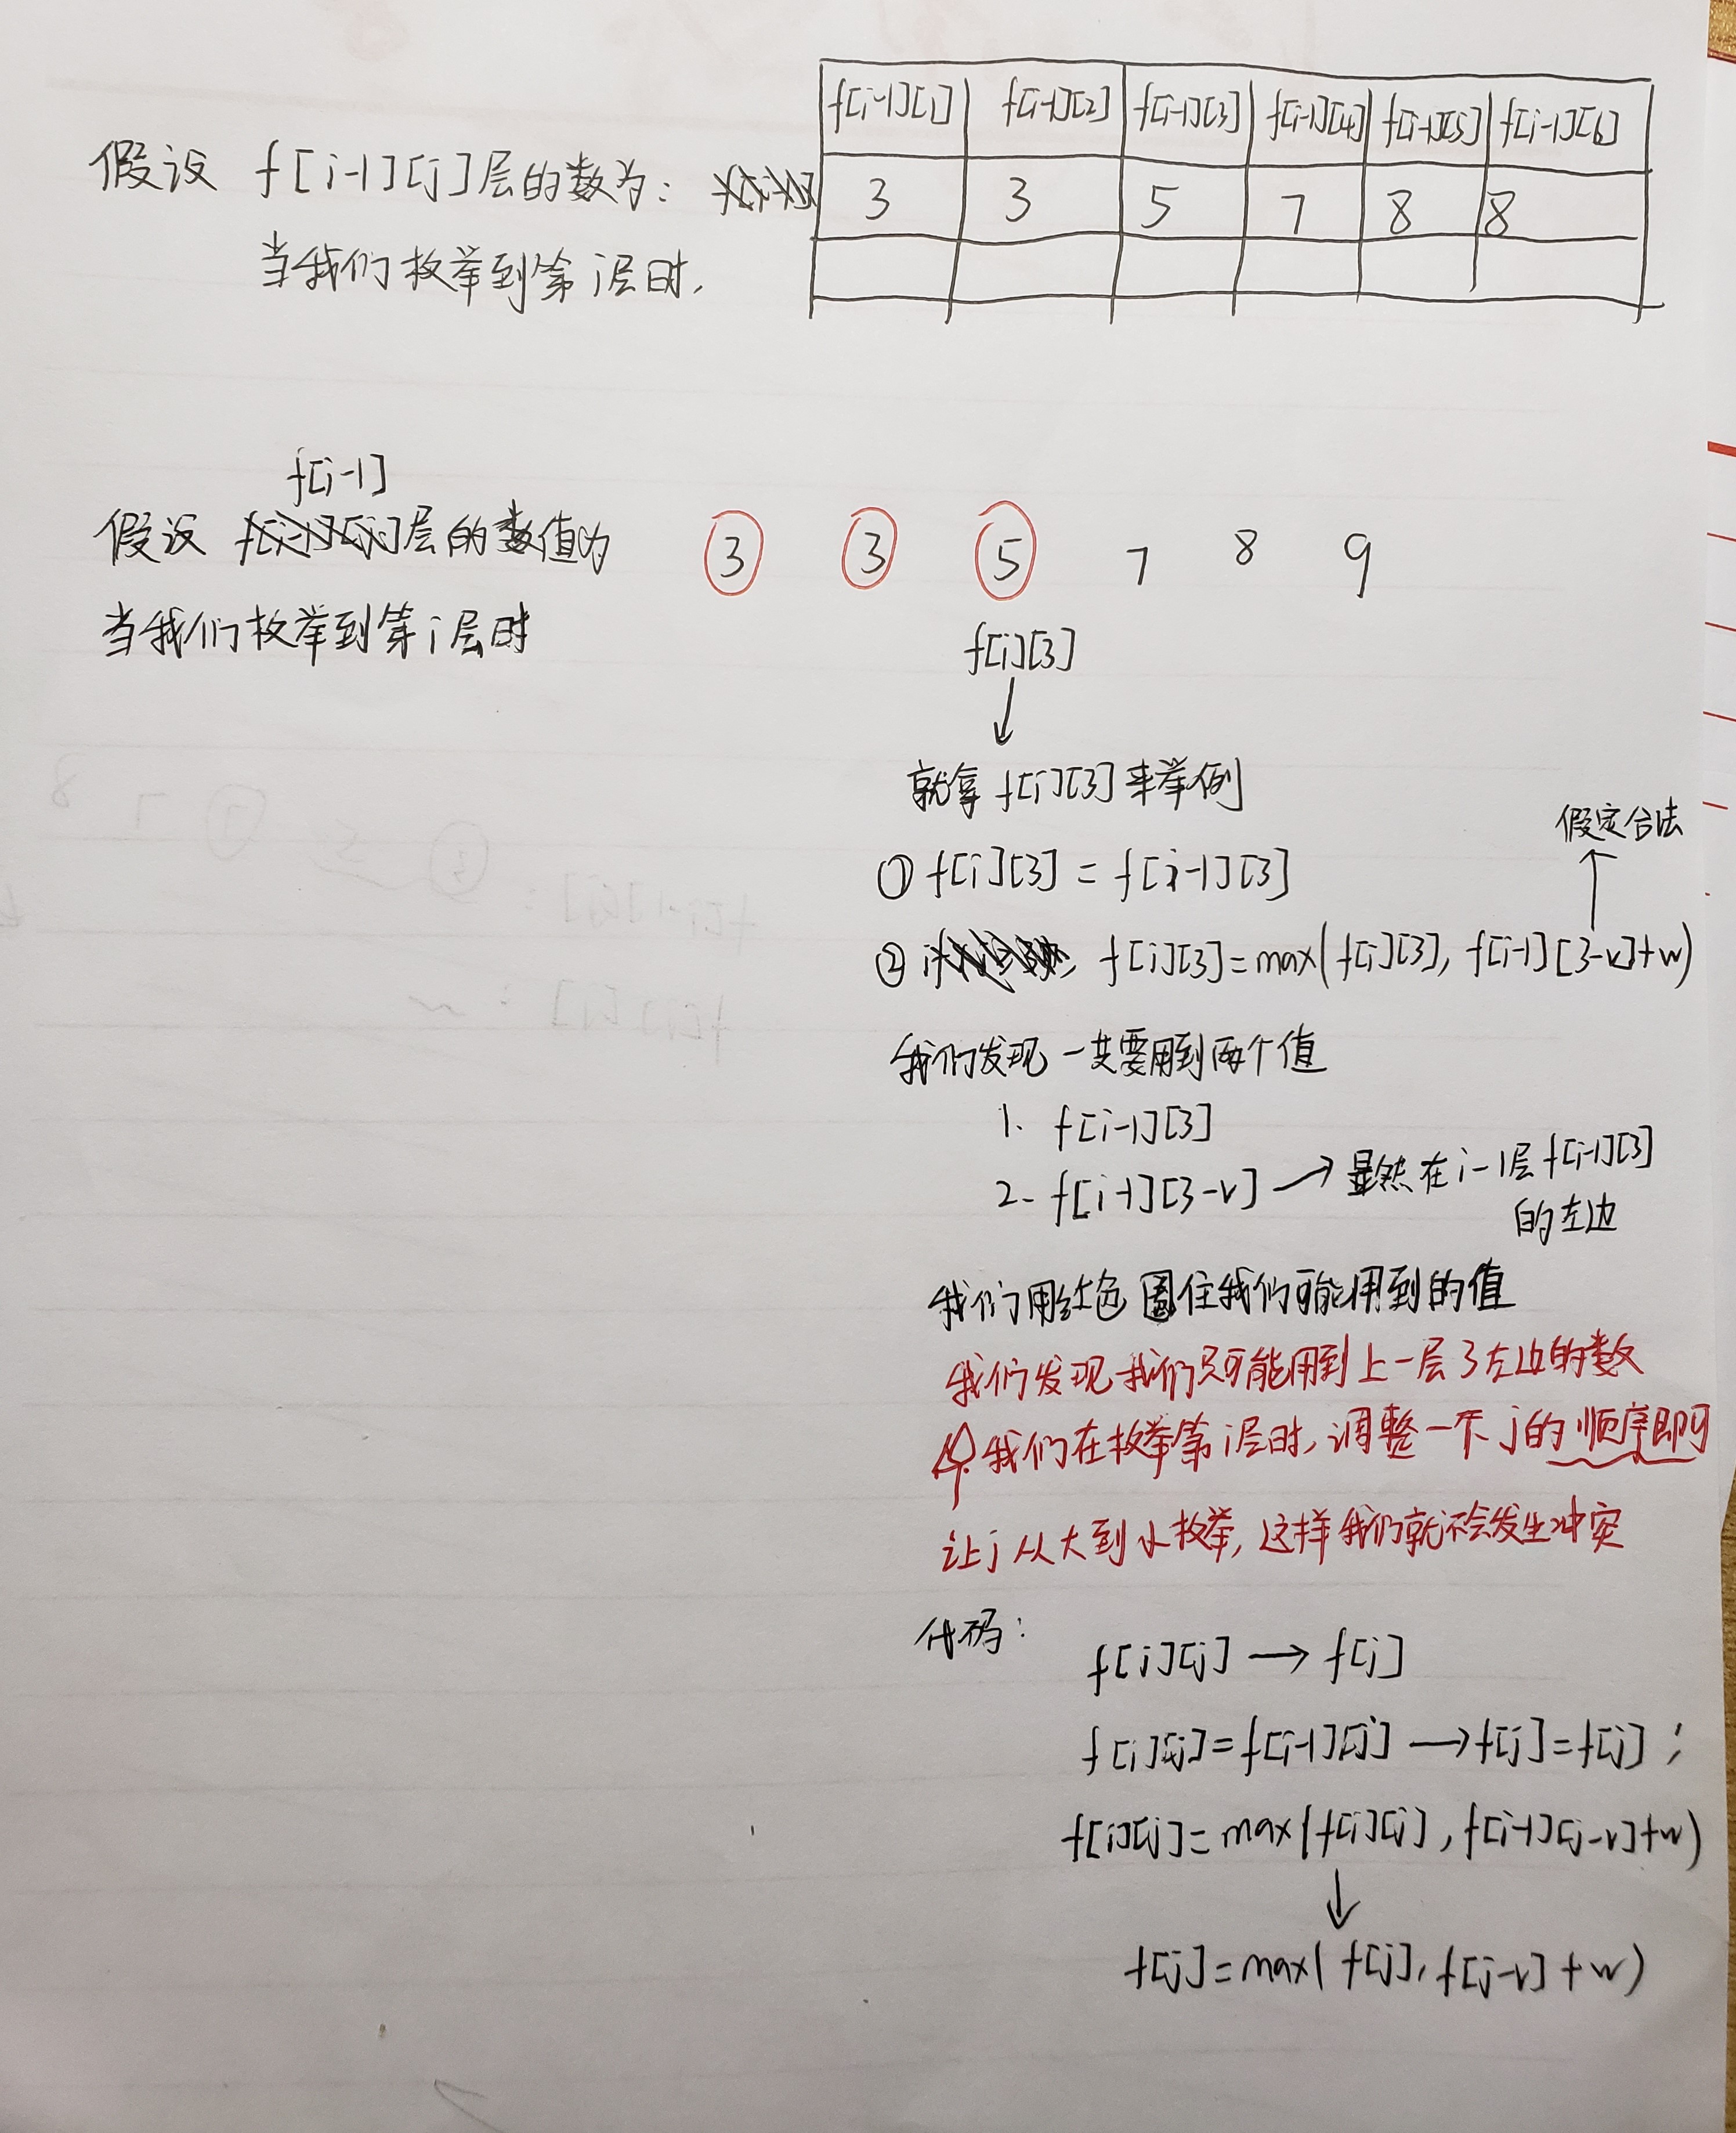 f[i-1][1] f[i-1][2] f[i-1][3] f[i-1][4] f[i-1][5] f[i-1][6]
假设 f[i-1][j]层的数为: 3 3 5 7 8 8
当我们枚举到第i层时,
f[i-1]
假设 层的数值为 3 3 5 7 8 9
当我们枚举到第i层时
f[i][3]
就拿 f[i][3] 来举例
假定合法
① f[i][3] = f[i-1][3]
② f[i][3]=max(f[i][3], f[i-1][3-v]+w)
我们发现一共要用到两个值
1. f[i-1][3]
2. f[i-1][3-v] → 显然在i-1层f[i-1][3]
的左边
我们用红色圈住我们可能用到的值
我们发现我们只可能用到上一层3左边的数
我们在枚举第i层时,调整一下j的顺序即可
让j从大到小枚举,这样我们就不会发生冲突
代码:
f[i][j] → f[j]
f[i][j]=f[i-1][j] → f[j]=f[j];
f[i][j]=max(f[i][j], f[i-1][j-v]+w)
↓
f[j]=max(f[j], f[j-v]+w)